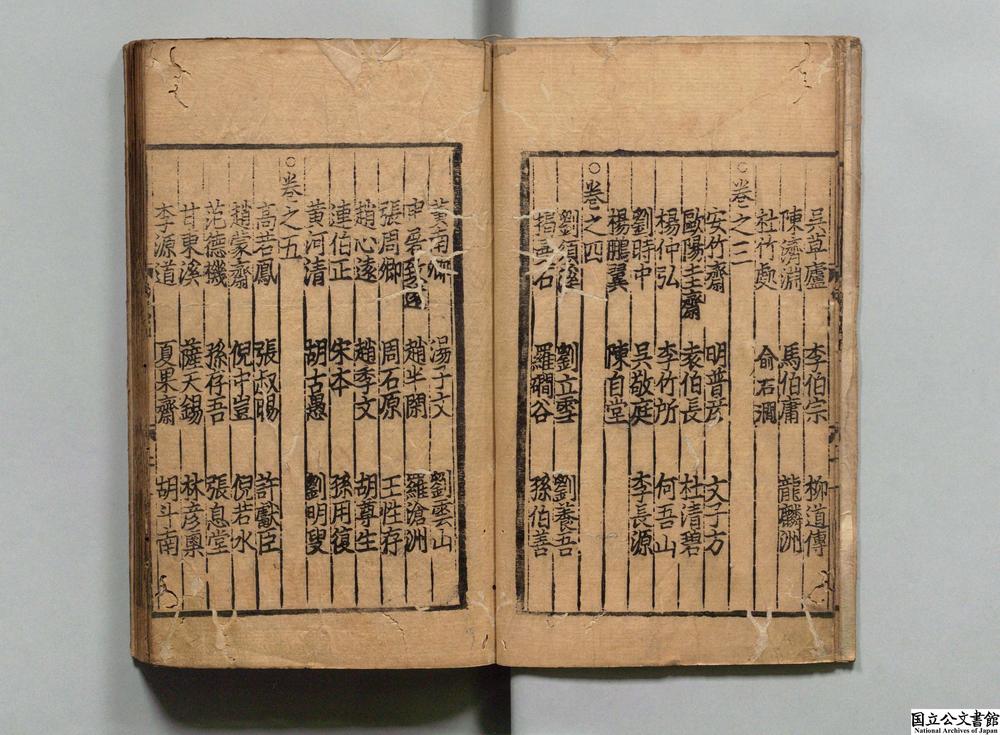 吳草廬 李伯宗 柳道傳
陳濟淵 馬伯庸 龍麟洲
杜竹處 俞石澗
○卷之三
安竹齋 明普彥 文子方
歐陽圭齋 袁伯長 杜清碧
楊仲弘 李竹所 何吾山
劉時中 吳敬庭 李長源
楊鵬翼 陳自堂
○卷之四
劉須溪 劉立雪 劉養吾
揭 石 羅磵谷 孫伯善
黃南卿 湯子文 劉雲山
申屠 趙半閑 羅滄洲
張周卿 周石原 王性存
趙心遠 趙季文 胡尊生
連伯正 宋本 孫用復
黃河清 胡古愚 劉明叟
○卷之五
高若鳳 張叔暘 許獻臣
趙蒙齋 倪中豈 倪若水
范德機 孫存吾 張息堂
甘東溪 薩天錫 林彥奧
李源道 夏果齋 胡斗南
国立公文書館
National Archives of Japan